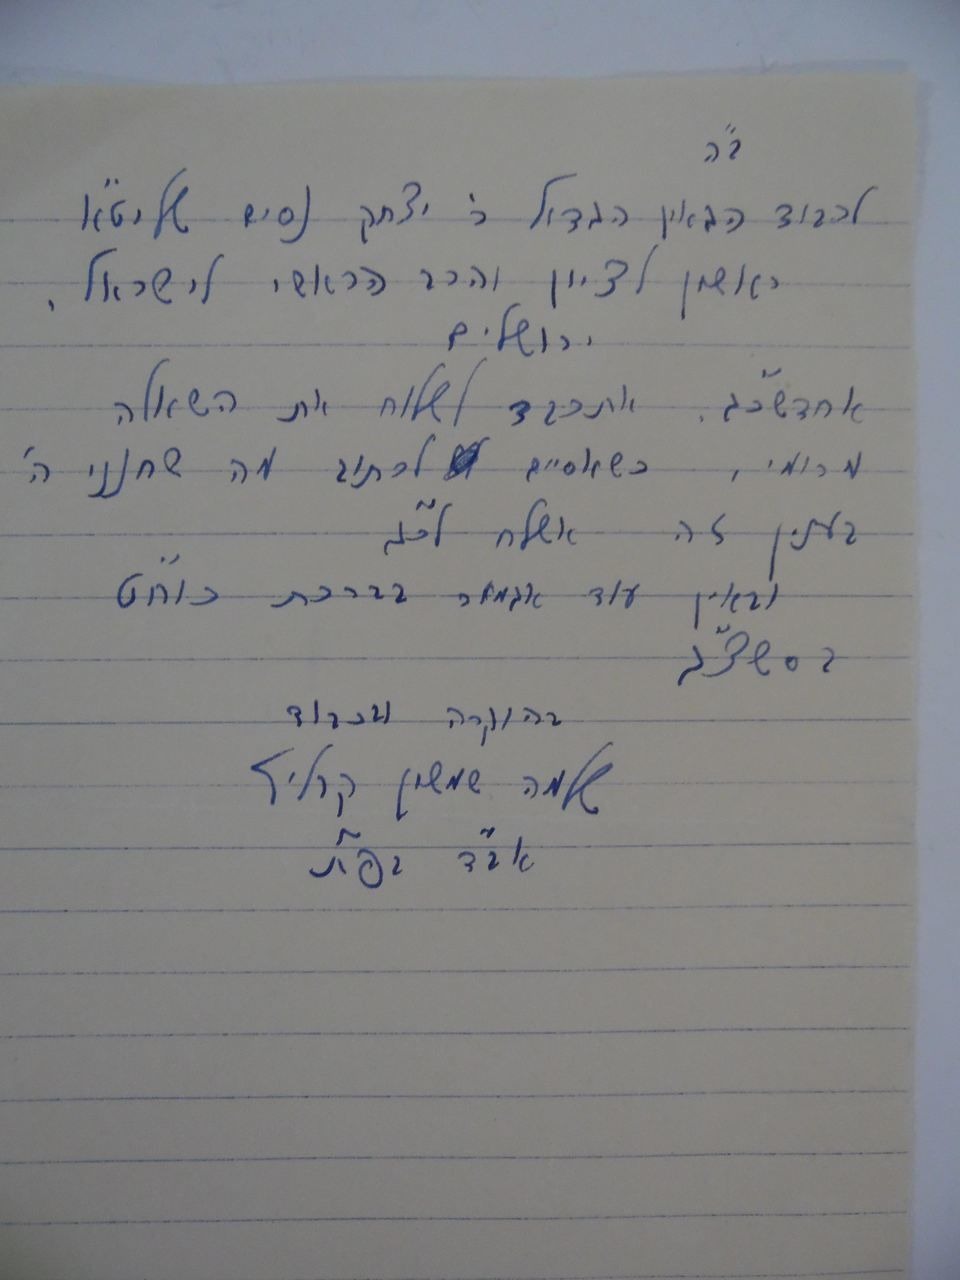 ב"ה
לכבוד הגאון הגדול ר' יצחק נסים שליט"א
ראשון לציון והרב הראשי לישראל,
ירושלים
אחדשכ"ג. אתכבד לשלוח את השאלה
מרומי, כשאסיים לכתוב מה שחנני ה'
בענין זה אשלח לכ"ג
ובאין עוד אגמור בברכת כוח"ט
בסשצ"ג
בהוקרה ובכבוד
שלמה שמשון קרליץ
אב"ד בפ"ת